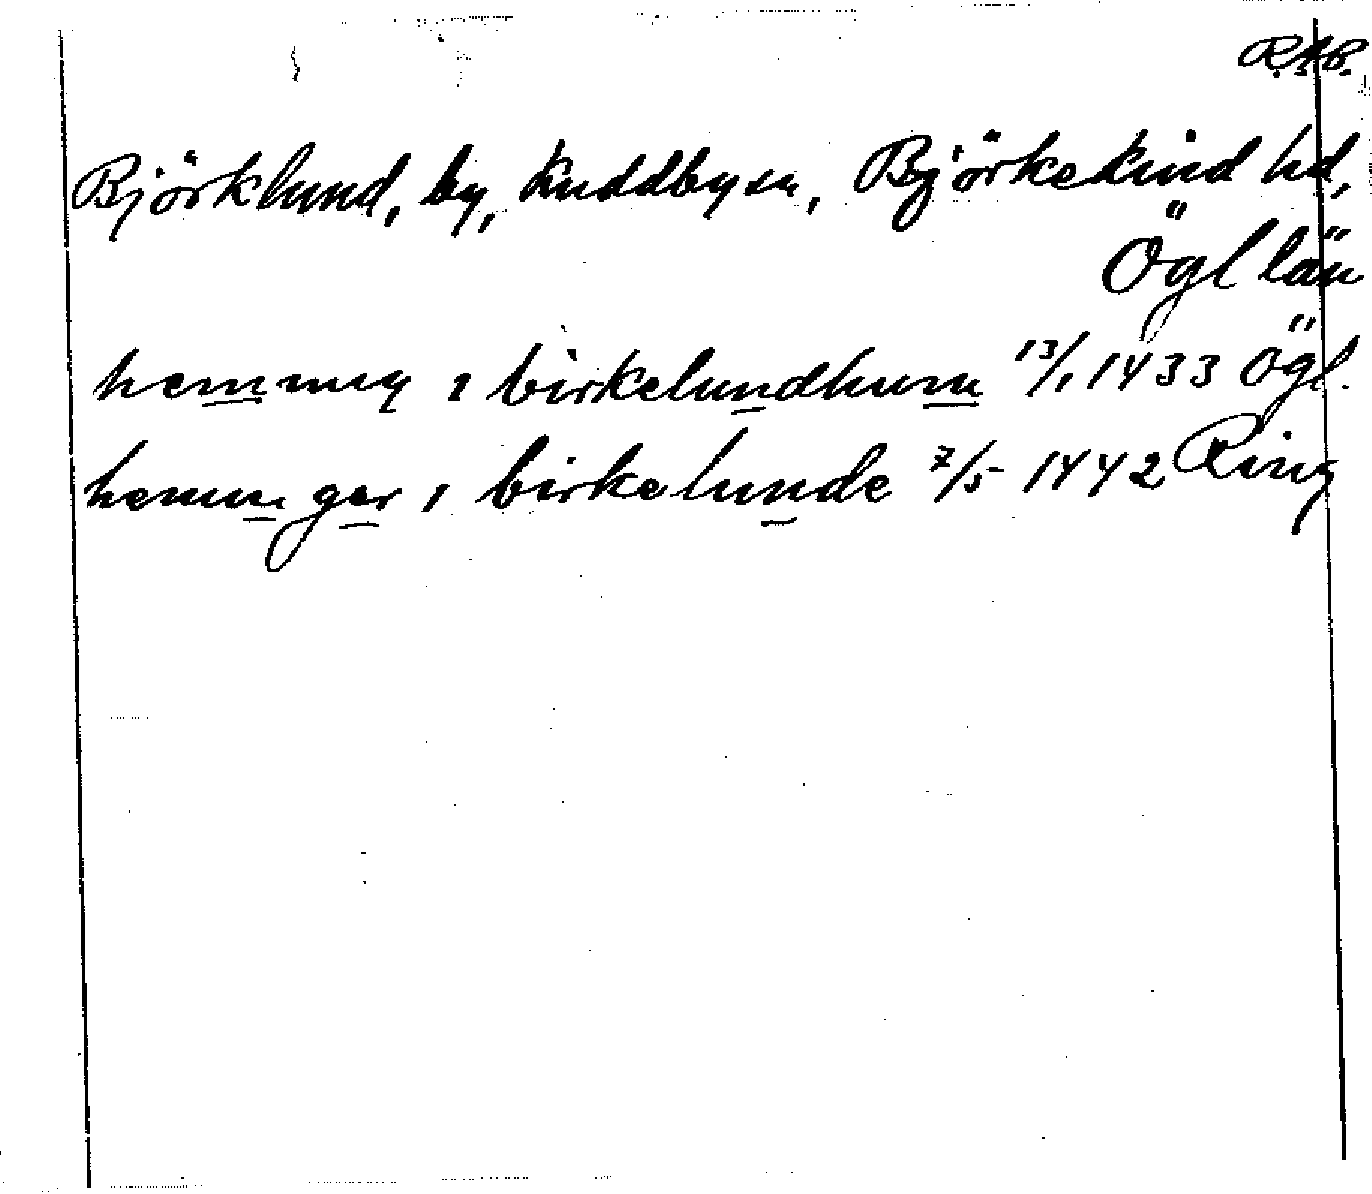 R.A.P.
Björklund, by, Kuddby sn, Björkekind hd,
Ögl län
hemmīg i birkelundhum 13/1 1433 Ögl.
hemmger i birkelunde 7/5 1442 Ring